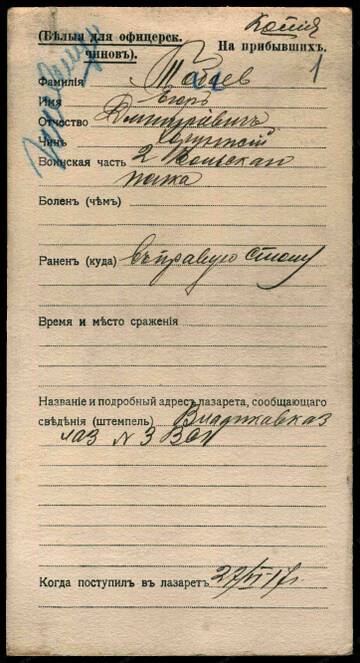 Копія
(Бѣлыя для офицерск. чиновъ).
На прибывшихъ.
1
Фамилія
Имя Егоръ
Отчество Дмитріевичъ
Чинъ
Воинская часть 2
полка
Боленъ (чѣмъ)
Раненъ (куда) въ правую стопу
Время и мѣсто сраженія
Названіе и подробный адресъ лазарета, сообщающаго
свѣдѣнія (штемпель) Владикавказ
лаз № 3
Когда поступилъ въ лазаретъ 27/VI-17 г.